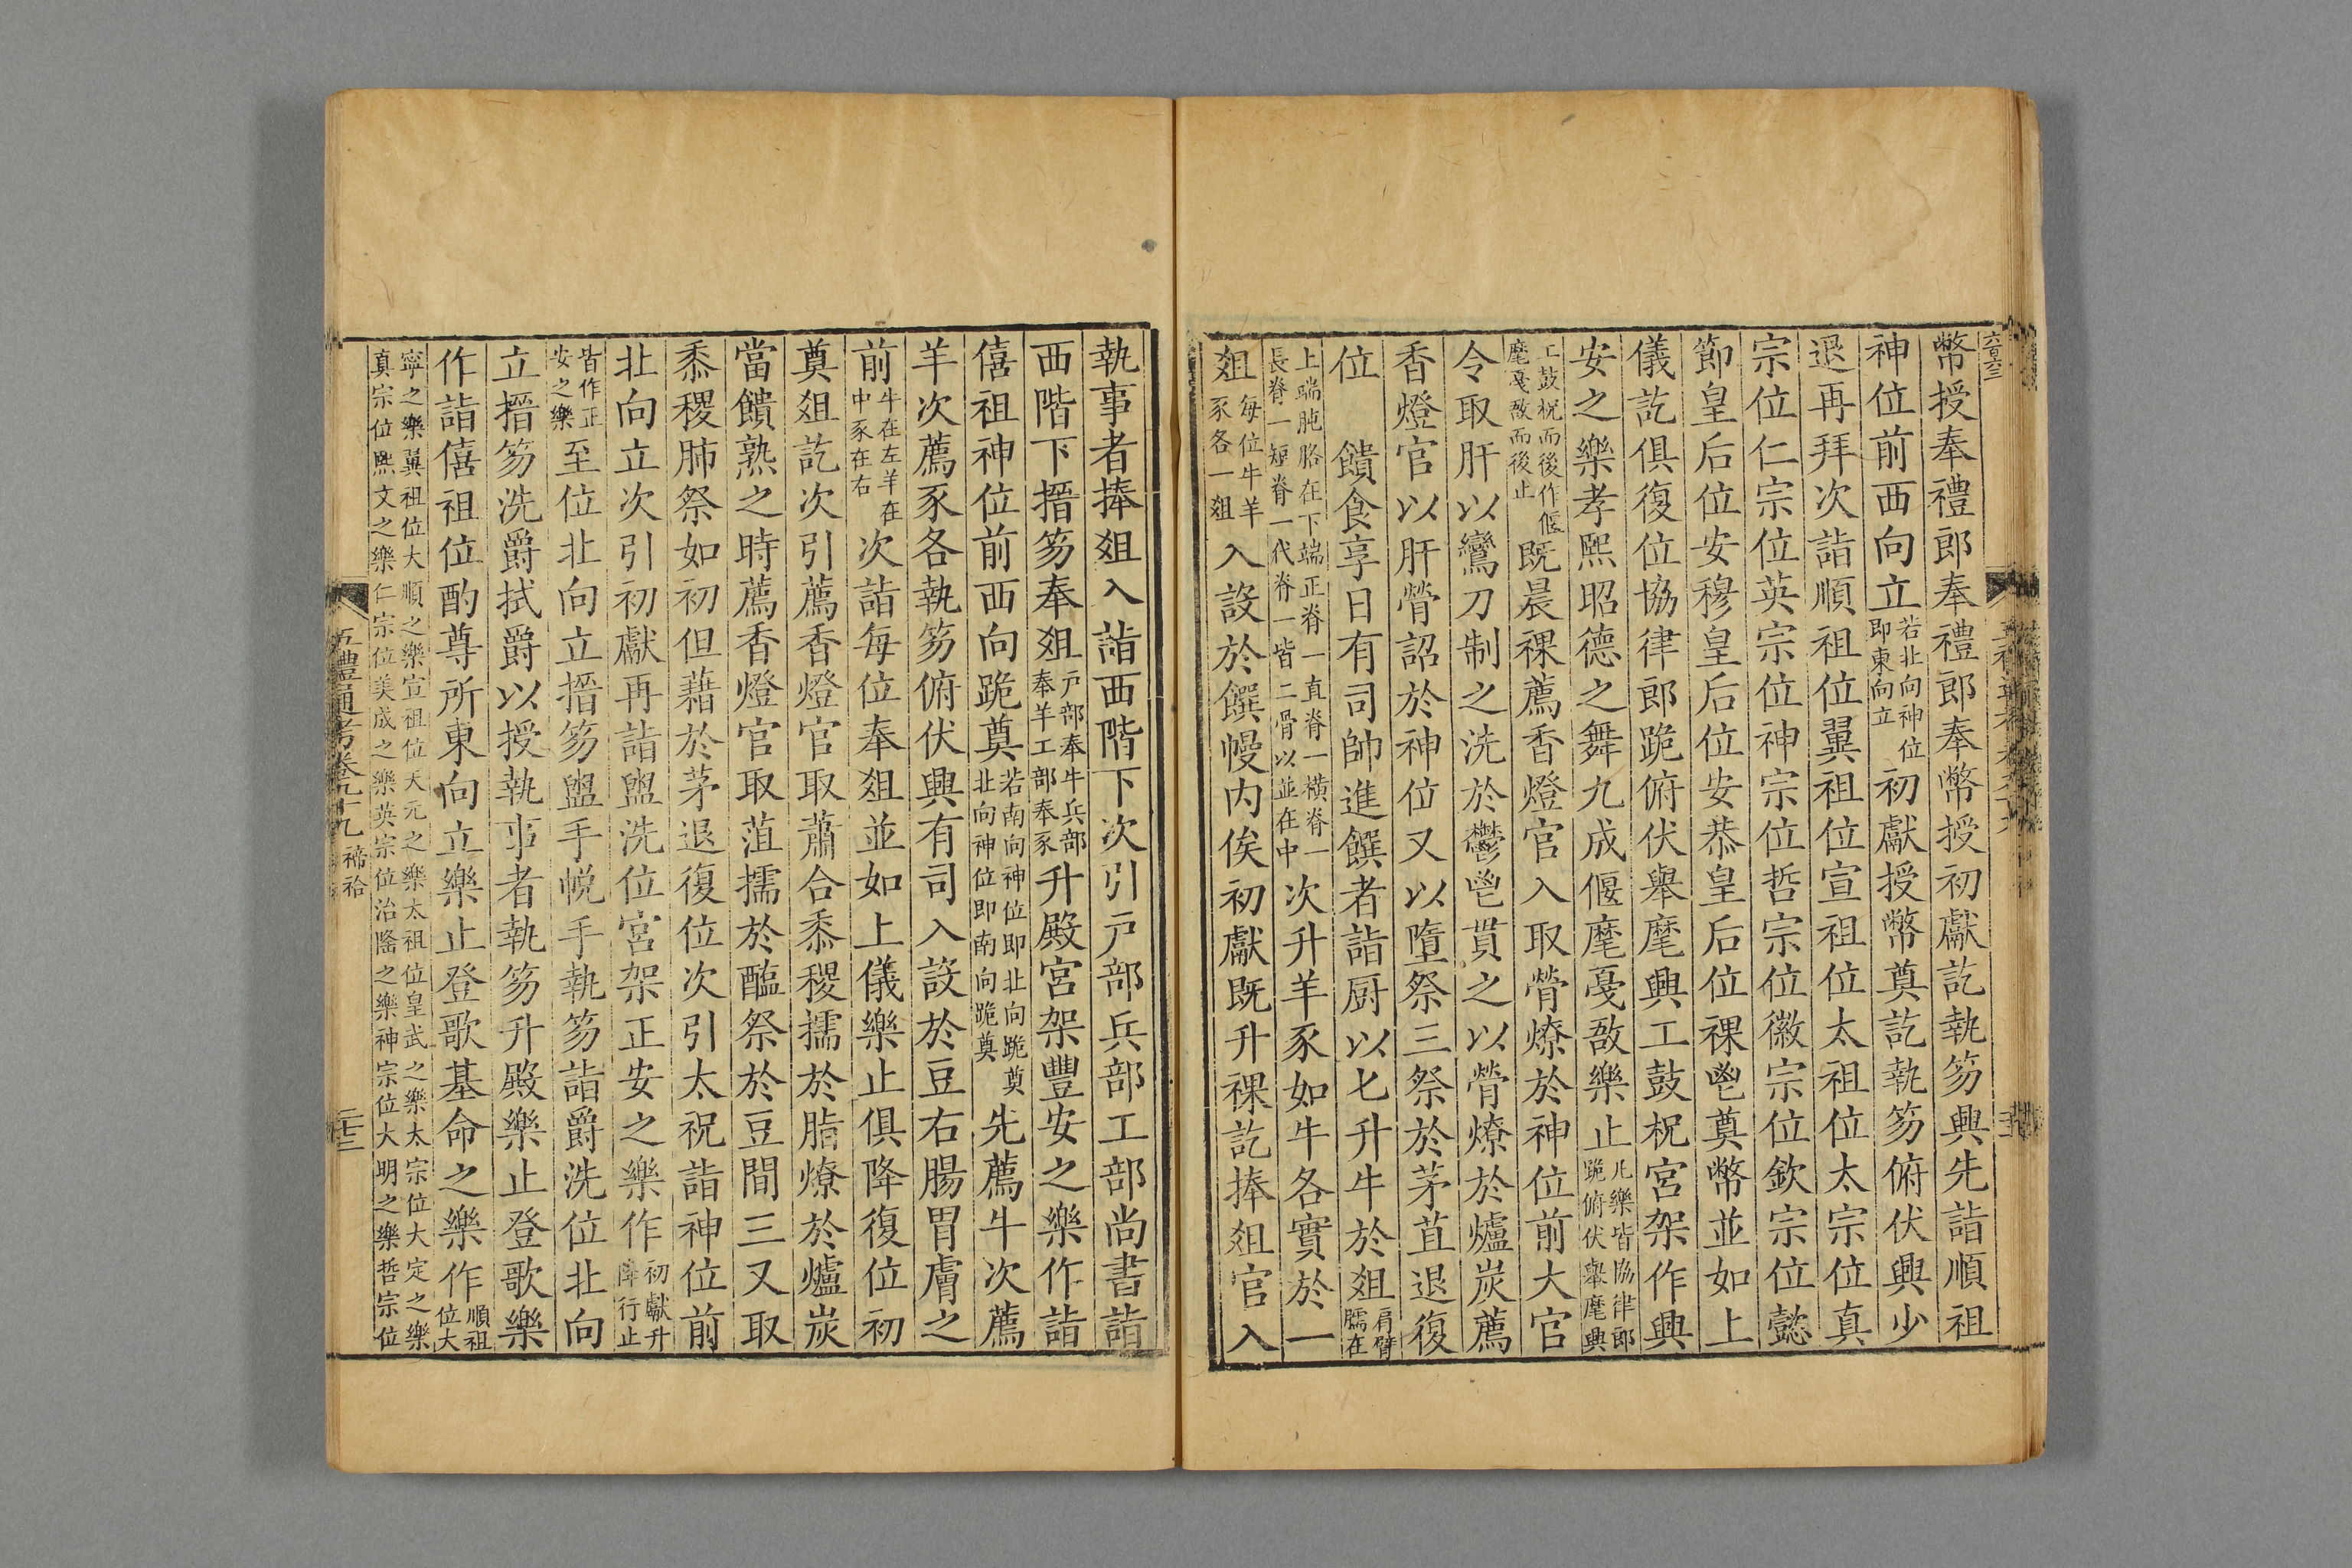 幣授奉禮郎奉禮郎奉幣授初獻訖執笏興先詣順祖
神位前西向立若北向神位即東向立初獻授幣奠訖執笏俯伏興少
退再拜次詣順祖位翼祖位宣祖位太祖位太宗位真
宗位仁宗位英宗位神宗位哲宗位徽宗位欽宗位懿
節皇后位安穆皇后位安恭皇后位祼鬯奠幣並如上
儀訖俱復位協律郎跪俯伏舉麾興工鼓柷宮架作興
安之樂孝熙昭德之舞九成偃麾戛敔樂止凡樂皆協律郎跪俯伏舉麾興
工鼓柷而後作偃麾戛敔而後止既晨祼薦香燈官入取膋燎於神位前大官
令取肝以鸞刀制之洗於鬱鬯貫之以膋燎於爐炭薦
香燈官以肝膋詔於神位又以墮祭三祭於茅苴退復
位　饋食享日有司帥進饌者詣厨以匕升牛於俎肩臂臑在
上端肫胳在下端正脊一直脊一橫脊一長脅一短脅一代脅一皆二骨以並在中次升羊豕如牛各實於一
俎每位牛羊豕各一俎入設於饌幔內俟初獻既升祼訖捧俎官入
執事者捧俎入詣西階下次引戶部兵部工部尚書詣
西階下搢笏奉俎戶部奉牛兵部奉羊工部奉豕升殿宮架豐安之樂作詣
僖祖神位前西向跪奠若南向神位即北向跪奠北向神位即南向跪奠先薦牛次薦
羊次薦豕各執笏俯伏興有司入設於豆右腸胃膚之
前牛在左羊在中豕在右次詣每位奉俎並如上儀樂止俱降復位初
奠俎訖次引薦香燈官取蕭合黍稷擩於脂燎於爐炭
當饋熟之時薦香燈官取菹擩於醢祭於豆間三又取
黍稷肺祭如初但藉於茅退復位次引太祝詣神位前
北向立次引初獻再詣盥洗位宮架正安之樂作初獻升降行止
皆作正安之樂至位北向立搢笏盥手帨手執笏詣爵洗位北向
立搢笏洗爵拭爵以授執事者執笏升殿樂止登歌樂
作詣僖祖位酌尊所東向立樂止登歌基命之樂作順祖位大
寧之樂翼祖位大順之樂宣祖位天元之樂太祖位皇武之樂太宗位大定之樂真宗位熙文之樂仁宗位美成之樂英宗位治隆之樂神宗位大明之樂哲宗位
五禮通考卷九十九 禘祫